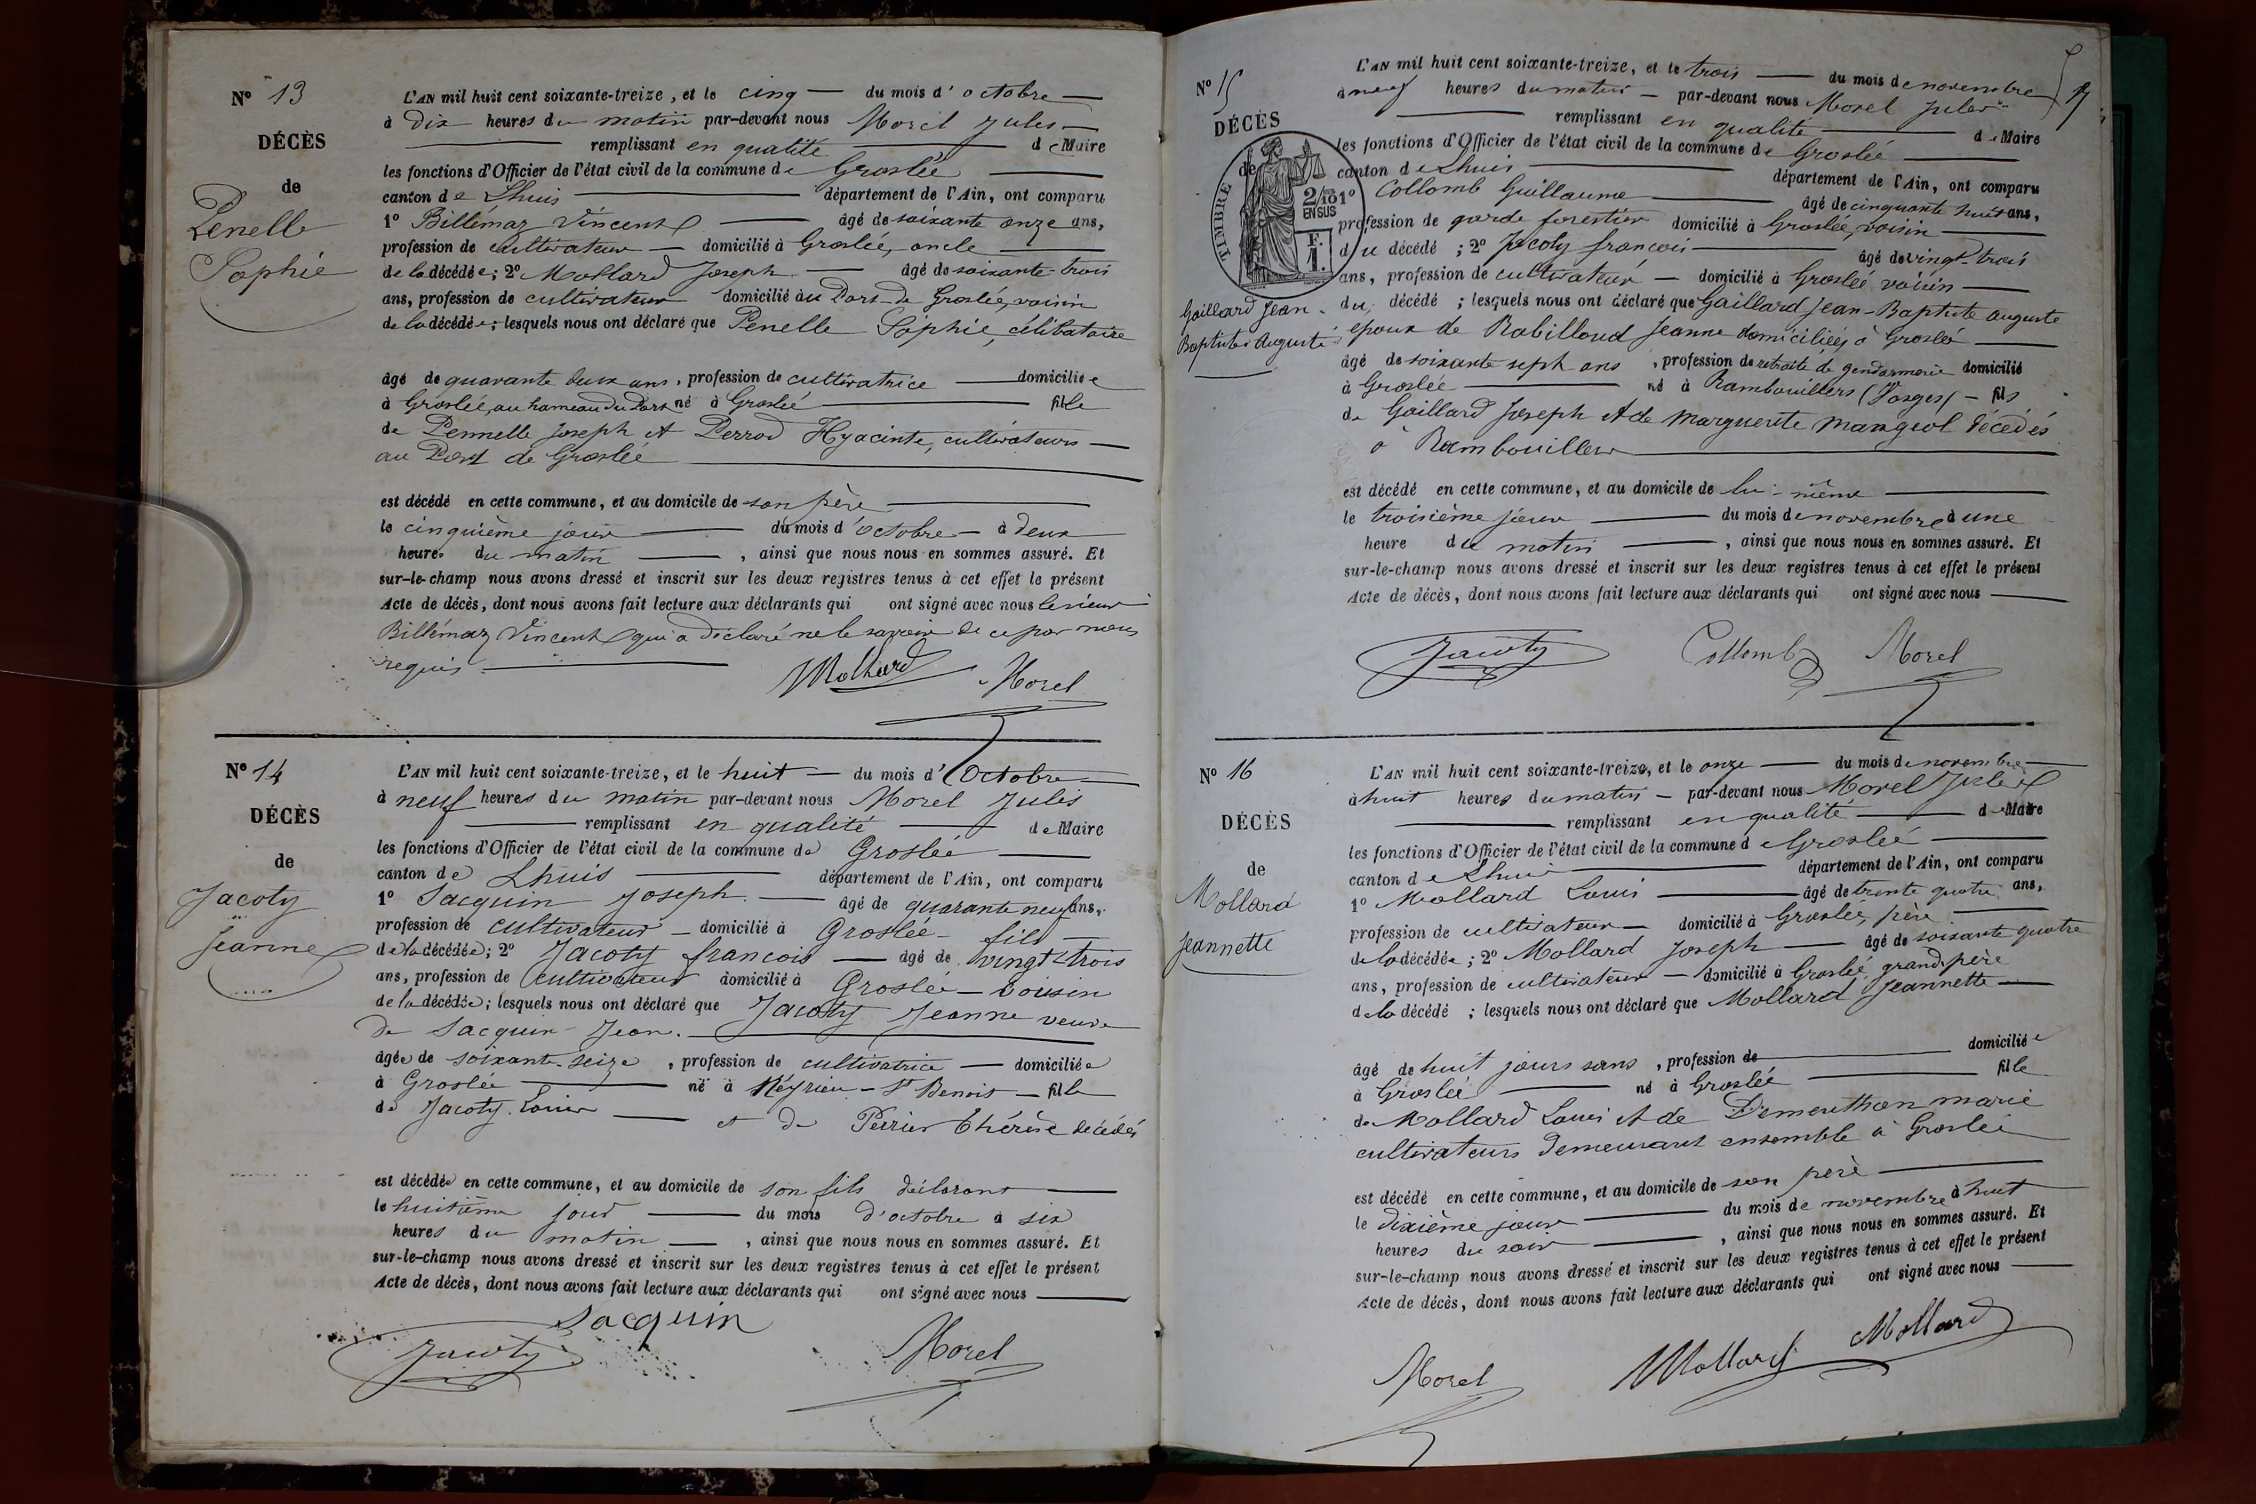 N° 13
DÉCÈS
de
Penelle
Sophie
L'AN mil huit cent soixante-treize, et le cinq du mois d'octobre
à dix heures du matin par-devant nous Morel Jules
remplissant en qualité de Maire
les fonctions d'Officier de l'état civil de la commune de Groslée
canton de Lhuis département de l'Ain, ont comparu
1° Billémaz Vincent âgé de soixante onze ans,
profession de cultivateur domicilié à Groslée, oncle
de la décédée; 2° Mollard Joseph âgé de soixante-trois
ans, profession de cultivateur domicilié au Port de Groslée, voisin
de la décédée; lesquels nous ont déclaré que Penelle Sophie, célibataire
âgé de quarante deux ans, profession de cultivatrice domiciliée
à Groslée, au hameau du Port né à Groslée fille
de Pennelle Joseph et Perrod Hyacinte, cultivateurs
au Port de Groslée
est décédé en cette commune, et au domicile de son père
le cinquième jour du mois d'octobre à deux
heures du matin, ainsi que nous nous en sommes assuré. Et
sur-le-champ nous avons dressé et inscrit sur les deux registres tenus à cet effet le présent
Acte de décès, dont nous avons fait lecture aux déclarants qui ont signé avec nous le sieur
Billémaz Vincent qui a déclaré ne le savoir de ce par nous
requis
Mollard Morel
N° 14
DÉCÈS
de
Jacoty
Jeanne
L'AN mil huit cent soixante-treize, et le huit du mois d'Octobre
à neuf heures du matin par-devant nous Morel Jules
remplissant en qualité de Maire
les fonctions d'Officier de l'état civil de la commune de Groslée
canton de Lhuis département de l'Ain, ont comparu
1° Sacquin Joseph âgé de quarante neuf ans,
profession de cultivateur domicilié à Groslée fils
de la décédée; 2° Jacoty francois âgé de vingt-trois
ans, profession de cultivateur domicilié à Groslée - voisin
de la décédée; lesquels nous ont déclaré que Jacoty Jeanne veuve
de Sacquin Jean
âgée de soixante-seize, profession de cultivatrice domiciliée
à Groslée né à Meyrieu - St Benoit fille
de Jacoty Louis et de Perrier Thérèse décédés
est décédée en cette commune, et au domicile de son fils déclarant
le huitième jour du mois d'octobre à six
heures du matin, ainsi que nous nous en sommes assuré. Et
sur-le-champ nous avons dressé et inscrit sur les deux registres tenus à cet effet le présent
Acte de décès, dont nous avons fait lecture aux déclarants qui ont signé avec nous
Sacquin
Jacoty Morel
N° 15
DÉCÈS
de
TIMBRE
2/10
EN SUS
F.
1.
Gaillard Jean-
Baptiste Auguste
L'AN mil huit cent soixante-treize, et le trois du mois de novembre
à neuf heures du matin par-devant nous Morel Jules
remplissant en qualité de Maire
les fonctions d'Officier de l'état civil de la commune de Groslée
canton de Lhuis département de l'Ain, ont comparu
1° Collomb Guillaume âgé de cinquante huit ans,
profession de garde forestier domicilié à Groslée, voisin
du décédé; 2° Jacoty francois âgé de vingt-trois
ans, profession de cultivateur domicilié à Groslée voisin
du décédé; lesquels nous ont déclaré que Gaillard Jean-Baptiste auguste
epoux de Rabilloud Jeanne domiciliés à Groslée
âgé de soixante sept ans, profession de retraité de gendarmerie domicilié
à Groslée né à Rambouillers (Vosges) fils
de Gaillard Joseph et de Marguerite Mangeol décédés
à Rambouillers
est décédé en cette commune, et au domicile de lui-même
le troisième jour du mois de novembre à une
heure du matin, ainsi que nous nous en sommes assuré. Et
sur-le-champ nous avons dressé et inscrit sur les deux registres tenus à cet effet le présent
Acte de décès, dont nous avons fait lecture aux déclarants qui ont signé avec nous
Jacoty Collomb Morel
N° 16
DÉCÈS
de
Mollard
Jeannette
L'AN mil huit cent soixante-treize, et le onze du mois de novembre
à huit heures du matin par-devant nous Morel Jules
remplissant en qualité de Maire
les fonctions d'Officier de l'état civil de la commune de Groslée
canton de Lhuis département de l'Ain, ont comparu
1° Mollard Louis âgé de trente quatre ans,
profession de cultivateur domicilié à Groslée, père
de la décédée; 2° Mollard Joseph âgé de soixante quatre
ans, profession de cultivateur domicilié à Groslée grand-père
de la décédé; lesquels nous ont déclaré que Mollard Jeannette
âgé de huit jours sans, profession de domiciliée
à Groslée né à Groslée fille
de Mollard Louis et de Demeuthon marie
cultivateurs demeurant ensemble à Groslée
est décédé en cette commune, et au domicile de son père
le dixième jour du mois de novembre à huit
heures du soir, ainsi que nous nous en sommes assuré. Et
sur-le-champ nous avons dressé et inscrit sur les deux registres tenus à cet effet le présent
Acte de décès, dont nous avons fait lecture aux déclarants qui ont signé avec nous
Morel Mollard Mollard